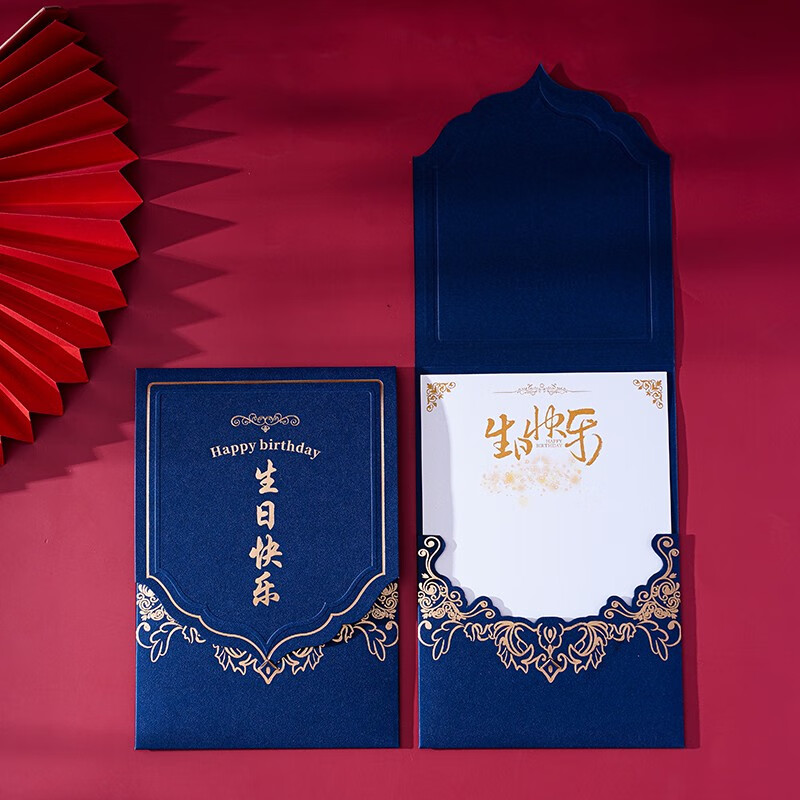 Happy birthday
生日快乐
生日快乐
HAPPY
BIRTHDAY